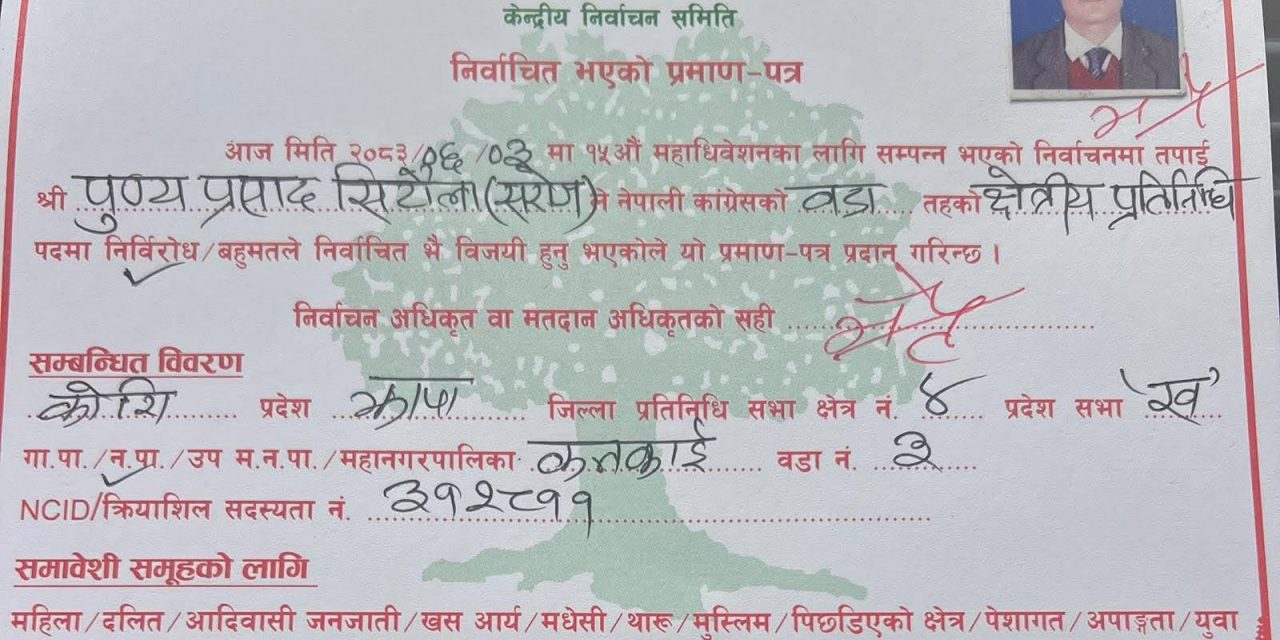 केन्द्रीय निर्वाचन समिति
निर्वाचित भएको प्रमाण-पत्र
आज मिति २०८३/०६/०३ मा १५औं महाधिवेशनका लागि सम्पन्न भएको निर्वाचनमा तपाई
श्री पुण्य प्रसाद सिटौला (सरोज) ले नेपाली कांग्रेसको वडा तहको क्षेत्रीय प्रतिनिधि
पदमा निर्विरोध/बहुमतले निर्वाचित भै विजयी हुनु भएकोले यो प्रमाण-पत्र प्रदान गरिन्छ।
निर्वाचन अधिकृत वा मतदान अधिकृतको सही
सम्बन्धित विवरण
कोशि प्रदेश झापा जिल्ला प्रतिनिधि सभा क्षेत्र नं. ४ प्रदेश सभा 'ख'
गा.पा./न.पा./उप म.न.पा./महानगरपालिका कनकाई वडा नं. ३
NCID/क्रियाशिल सदस्यता नं. ३१२८११
समावेशी समूहको लागि
महिला/दलित/आदिवासी जनजाती/खस आर्य/मधेसी/थारू/मुस्लिम/पिछडिएको क्षेत्र/पेशागत/अपाङ्गता/युवा